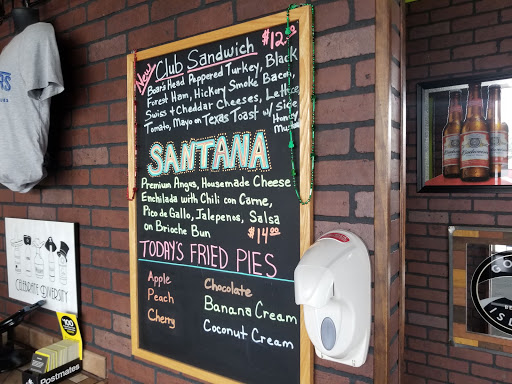 New
Club Sandwich $12.00
Boars Head Peppered Turkey, Black
Forest Ham, Hickory Smoke Bacon,
Swiss + Cheddar Cheeses, Lettuce
Tomato, Mayo on Texas Toast w/ Side
Honey
SANTANA
Premium Angus, Housemade Cheese
Enchilada with Chili con Carne,
Pico de Gallo, Jalepenos, Salsa
on Brioche Bun $14.00
TODAY'S FRIED PIES
Apple
Peach
Cherry
Chocolate
Banana Cream
Coconut Cream
CELEBRATE DIVERSITY
$100
Postmates
Budweiser